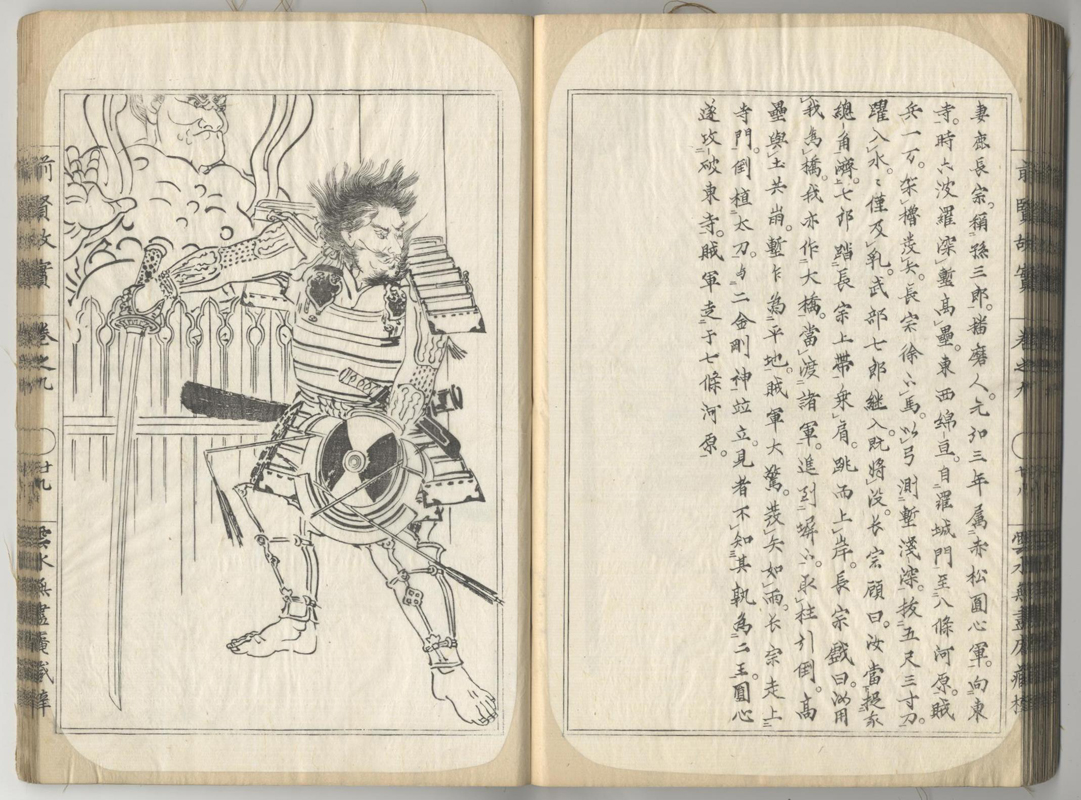 前賢故實 卷之九
雲水無盡庵藏梓
妻鹿長宗。稱孫三郎。播磨人。元弘三年属赤松圓心軍。向東
寺。時六波羅深塹高壘。東西綿亘。自羅城門至八條河原。賊
兵一万。架櫓發矢。長宗徐下馬。以弓測塹淺深。拔五尺三寸刀。
躍入水。々僅及乳。武部七郎継入。既將没。长宗顧曰。汝當捉我
總角濟。七郎踏長宗上帶乗肩。跳而上岸。長宗戲曰。汝用
我為橋。我亦作大橋。當渡諸軍。進到塀下。取柱引倒。高
壘與土共崩。塹乍為平地。賊軍大驚。發矢如雨。长宗走上
寺門。倒植太刀。与二金剛神竝立。見者不知其孰為二王。圓心
遂攻破東寺。賊軍走于七條河原。
前賢故實 卷之九 廿九 雲水無盡庵藏梓